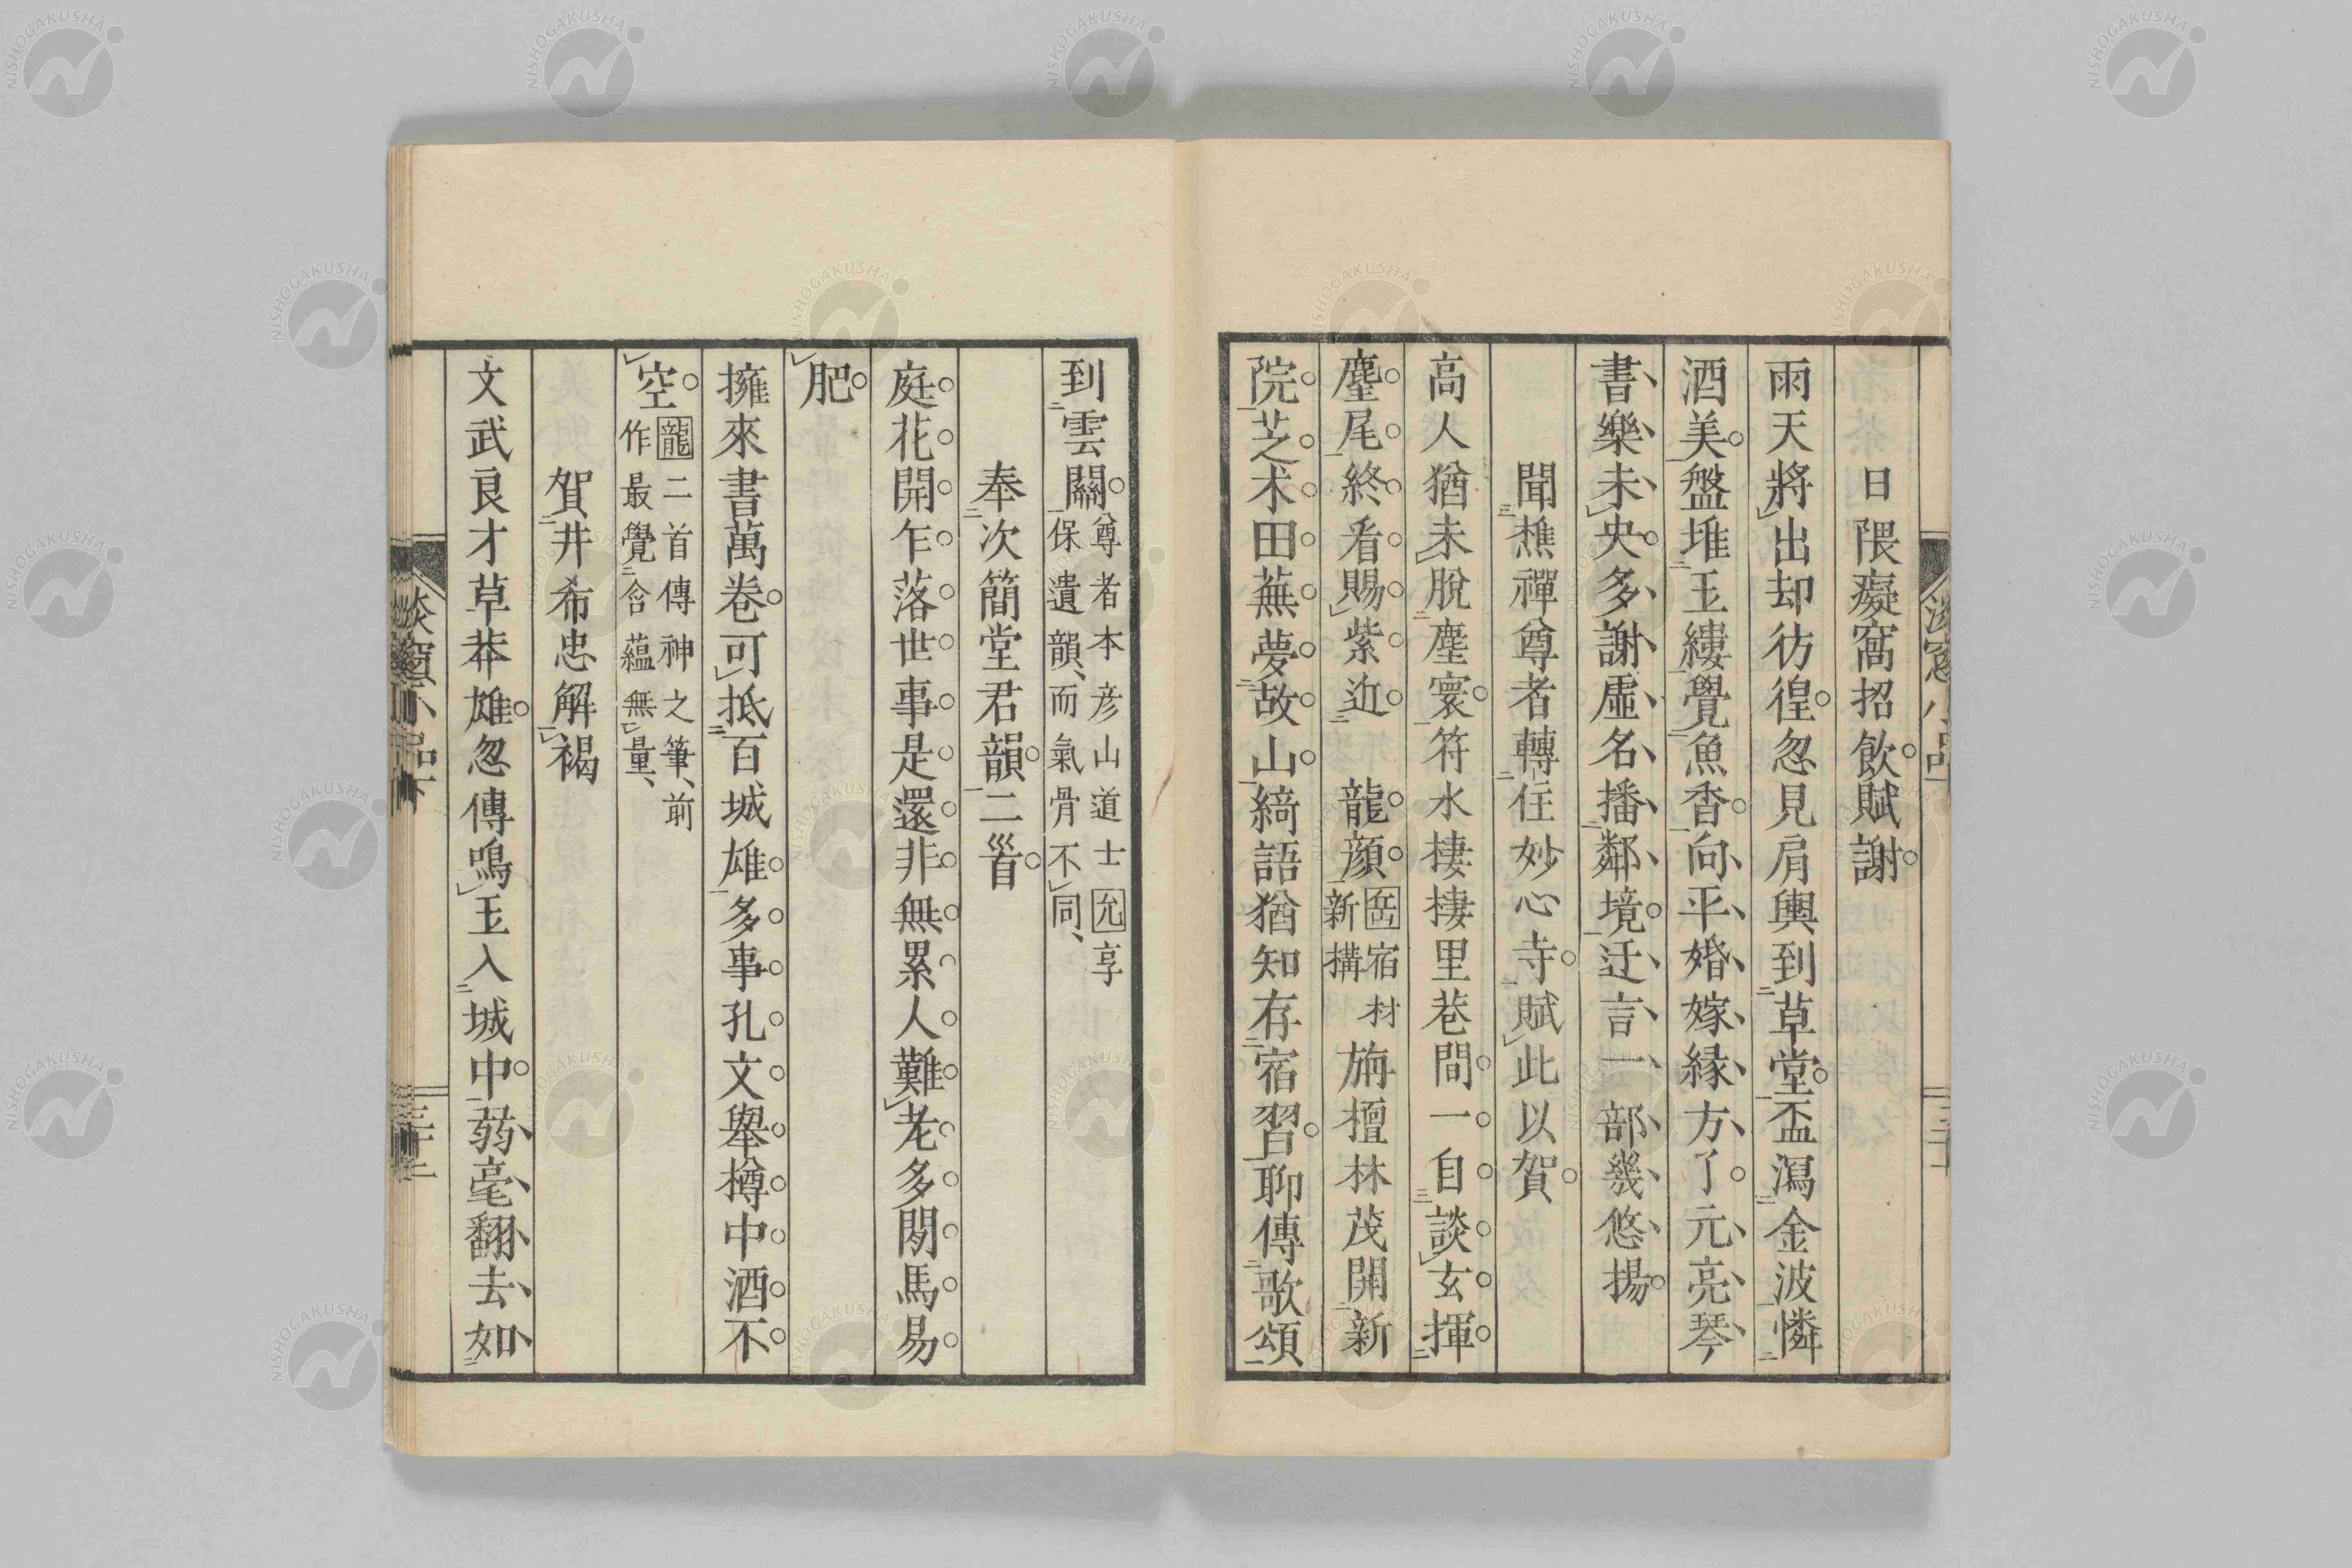 日隈癡窩招飲。賦謝。
雨天將出却彷徨。忽見肩輿到草堂。盃瀉金波憐
酒美。盤堆玉縷覺魚香。向平婚嫁緣方了。元亮琴
書樂未央。多謝虛名播鄰境。迂言一部幾悠揚。
聞樵禪尊者轉住妙心寺。賦此以賀。
高人猶未脫塵寰。符水棲棲里巷間。一自談玄揮
麈尾。終看賜紫近龍顏。
岳宿材
新構
旃檀林茂開新
院。芝朮田蕪夢故山。綺語猶知存宿習。聊傳歌頌
到雲關。
尊者本彥山道士允享
保遺韻、而氣骨不同、
奉次簡堂君韻。二首。
庭花開乍落。世事是還非。無累人難老。多閒馬易
肥。
擁來書萬卷。可抵百城雄。多事孔文舉。樽中酒不
空。
龍二首傳神之筆、前
作最覺含蘊無量、
賀井希忠解褐
文武良才草莽雄。忽傳鳴玉入城中。弱毫翻去如
淡窗小品
NISHOGAKUSHA